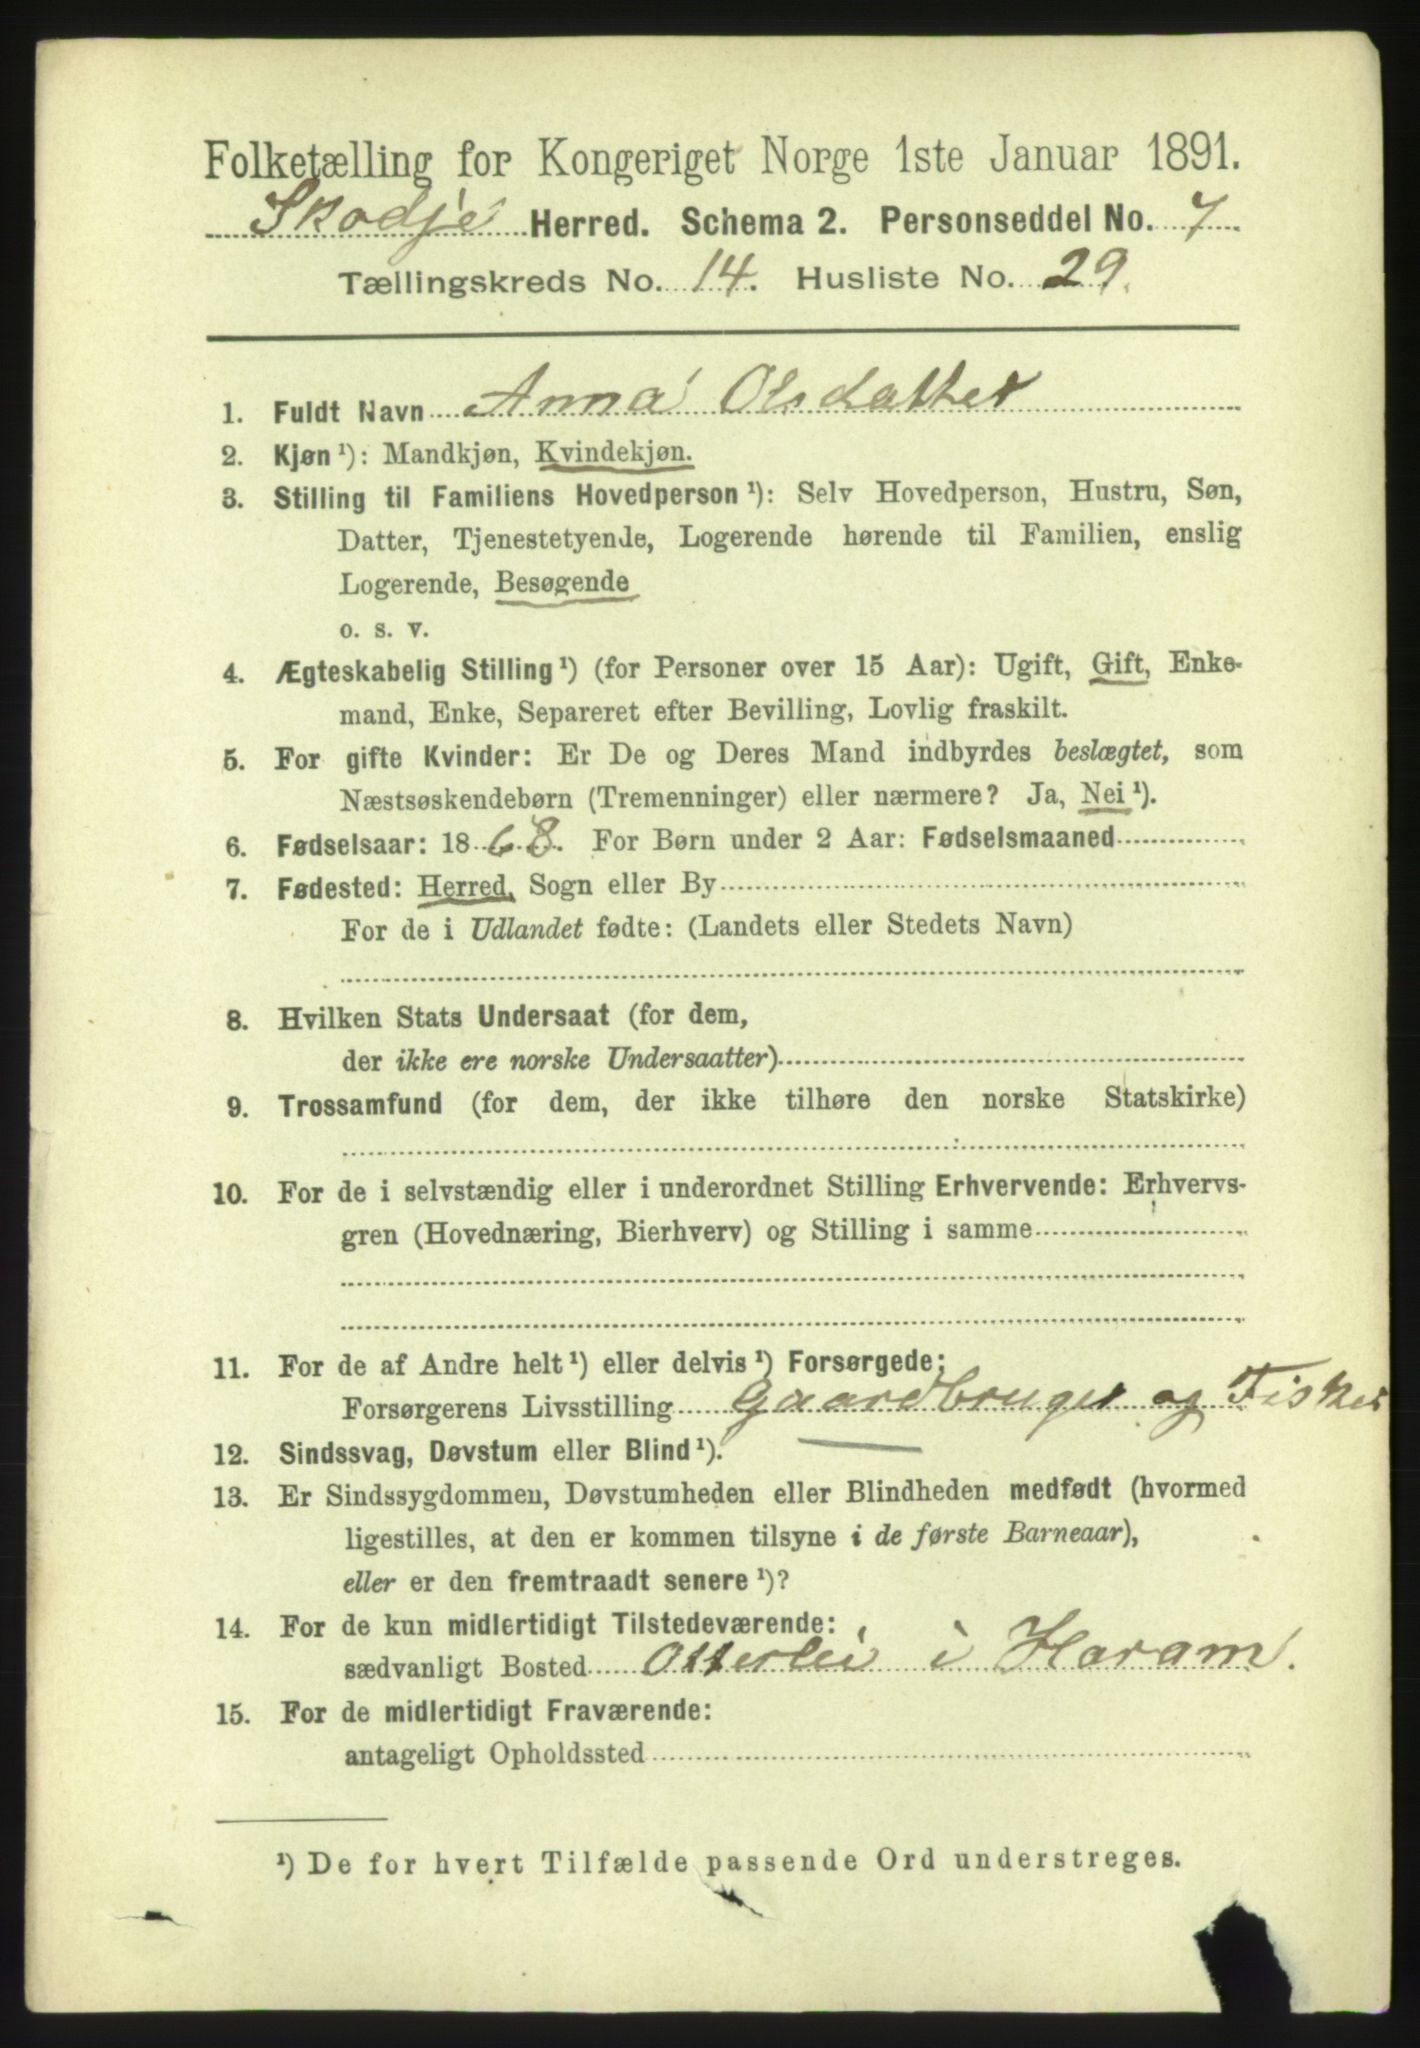 Folketælling for Kongeriget Norge 1ste Januar 1891.
Skodje Herred. Schema 2. Personseddel No. 7
Tællingskreds No. 14. Husliste No. 29.
1. Fuldt Navn Anna Olsdatter
2. Kjøn ¹): Mandkjøn, Kvindekjøn.
3. Stilling til Familiens Hovedperson ¹): Selv Hovedperson, Hustru, Søn,
Datter, Tjenestetyende, Logerende hørende til Familien, enslig
Logerende, Besøgende
o. s. v.
4. Ægteskabelig Stilling ¹) (for Personer over 15 Aar): Ugift, Gift, Enke-
mand, Enke, Separeret efter Bevilling, Lovlig fraskilt.
5. For gifte Kvinder: Er De og Deres Mand indbyrdes beslægtet, som
Næstsøskendebørn (Tremenninger) eller nærmere? Ja, Nei ¹).
6. Fødselsaar: 1868. For Børn under 2 Aar: Fødselsmaaned
7. Fødested: Herred, Sogn eller By
For de i Udlandet fødte: (Landets eller Stedets Navn)
8. Hvilken Stats Undersaat (for dem,
der ikke ere norske Undersaatter)
9. Trossamfund (for dem, der ikke tilhøre den norske Statskirke)
10. For de i selvstændig eller i underordnet Stilling Erhvervende: Erhvervs-
gren (Hovednæring, Bierhverv) og Stilling i samme
11. For de af Andre helt ¹) eller delvis ¹) Forsørgede;
Forsørgerens Livsstilling Gaardbruger og Fisker
12. Sindssvag, Døvstum eller Blind ¹).
13. Er Sindssygdommen, Døvstumheden eller Blindheden medfødt (hvormed
ligestilles, at den er kommen tilsyne i de første Barneaar),
eller er den fremtraadt senere ¹)?
14. For de kun midlertidigt Tilstedeværende:
sædvanligt Bosted Otterlei i Haram.
15. For de midlertidigt Fraværende:
antageligt Opholdssted
¹) De for hvert Tilfælde passende Ord understreges.